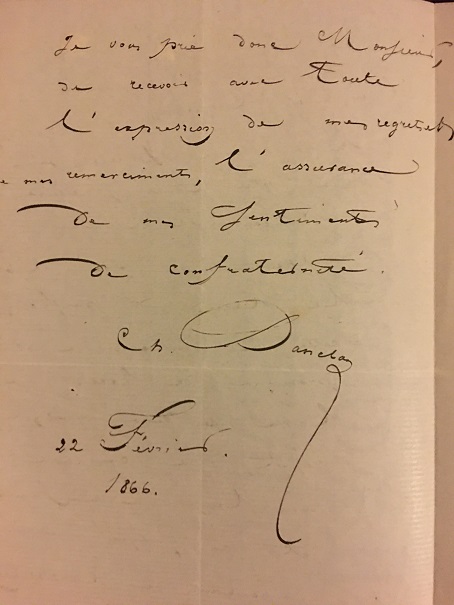 Je vous prie donc Monsieur,
de recevoir avec toute
l'expression de mes regrets
de mes remerciments, l'assurance
De mes Sentiments
De confraternité.
Ch. Dancla
22 Février.
1866.